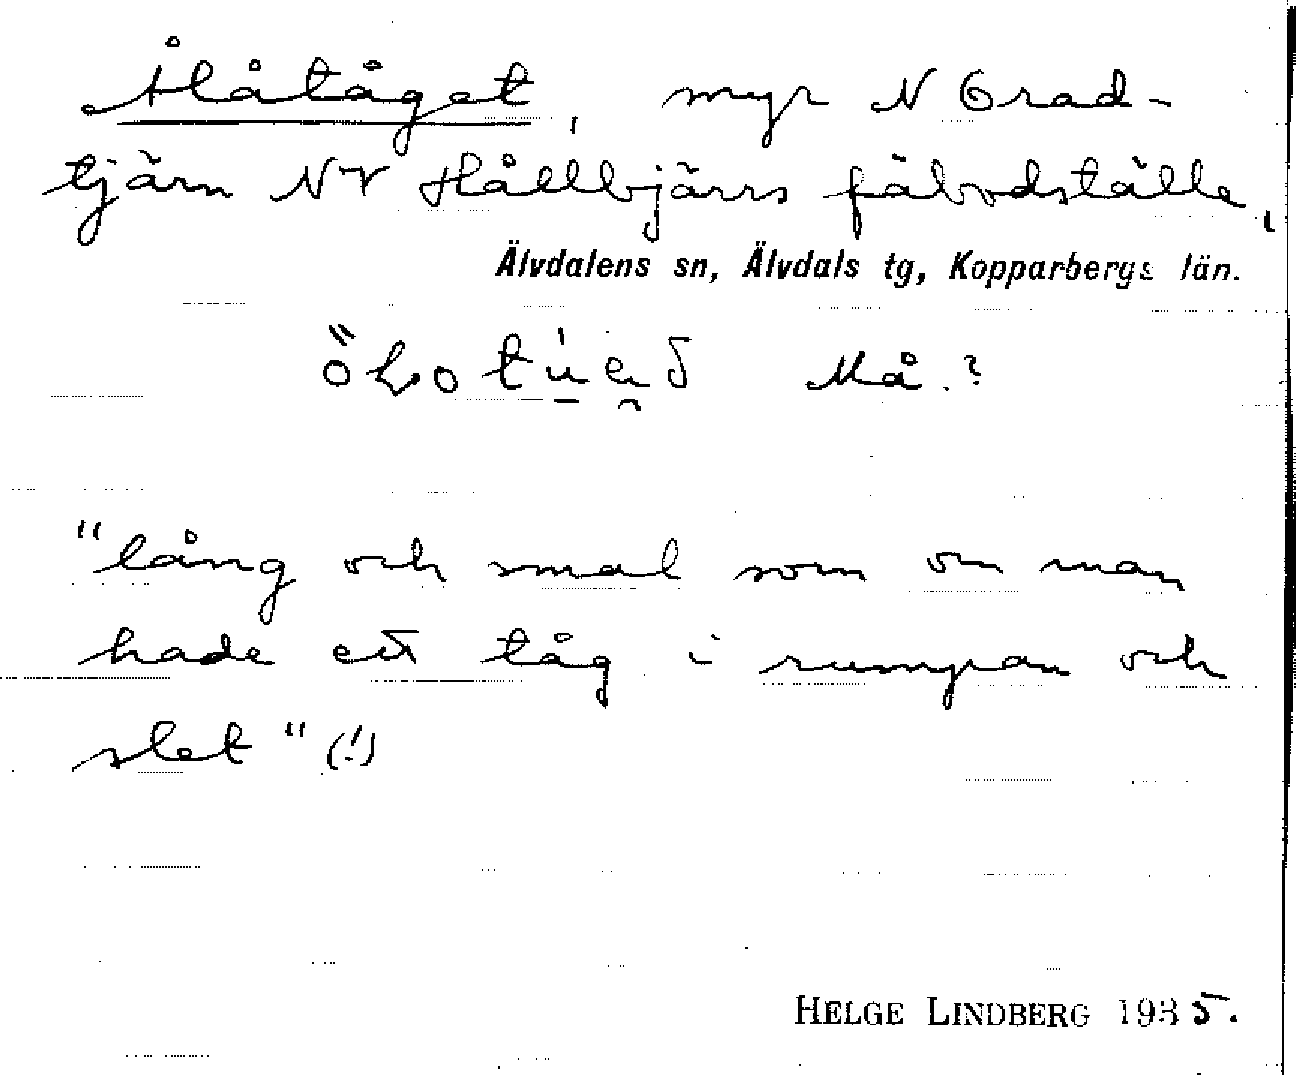 Ålåtåget, myr N Grad-
tjärn NV Hållbjärrs fäbodställe,
Älvdalens sn, Älvdals tg, Kopparbergs län.
Må.?
"lång och smal som om man
hade ett tåg i rumpan och
slet" (!)
HELGE LINDBERG 1935.